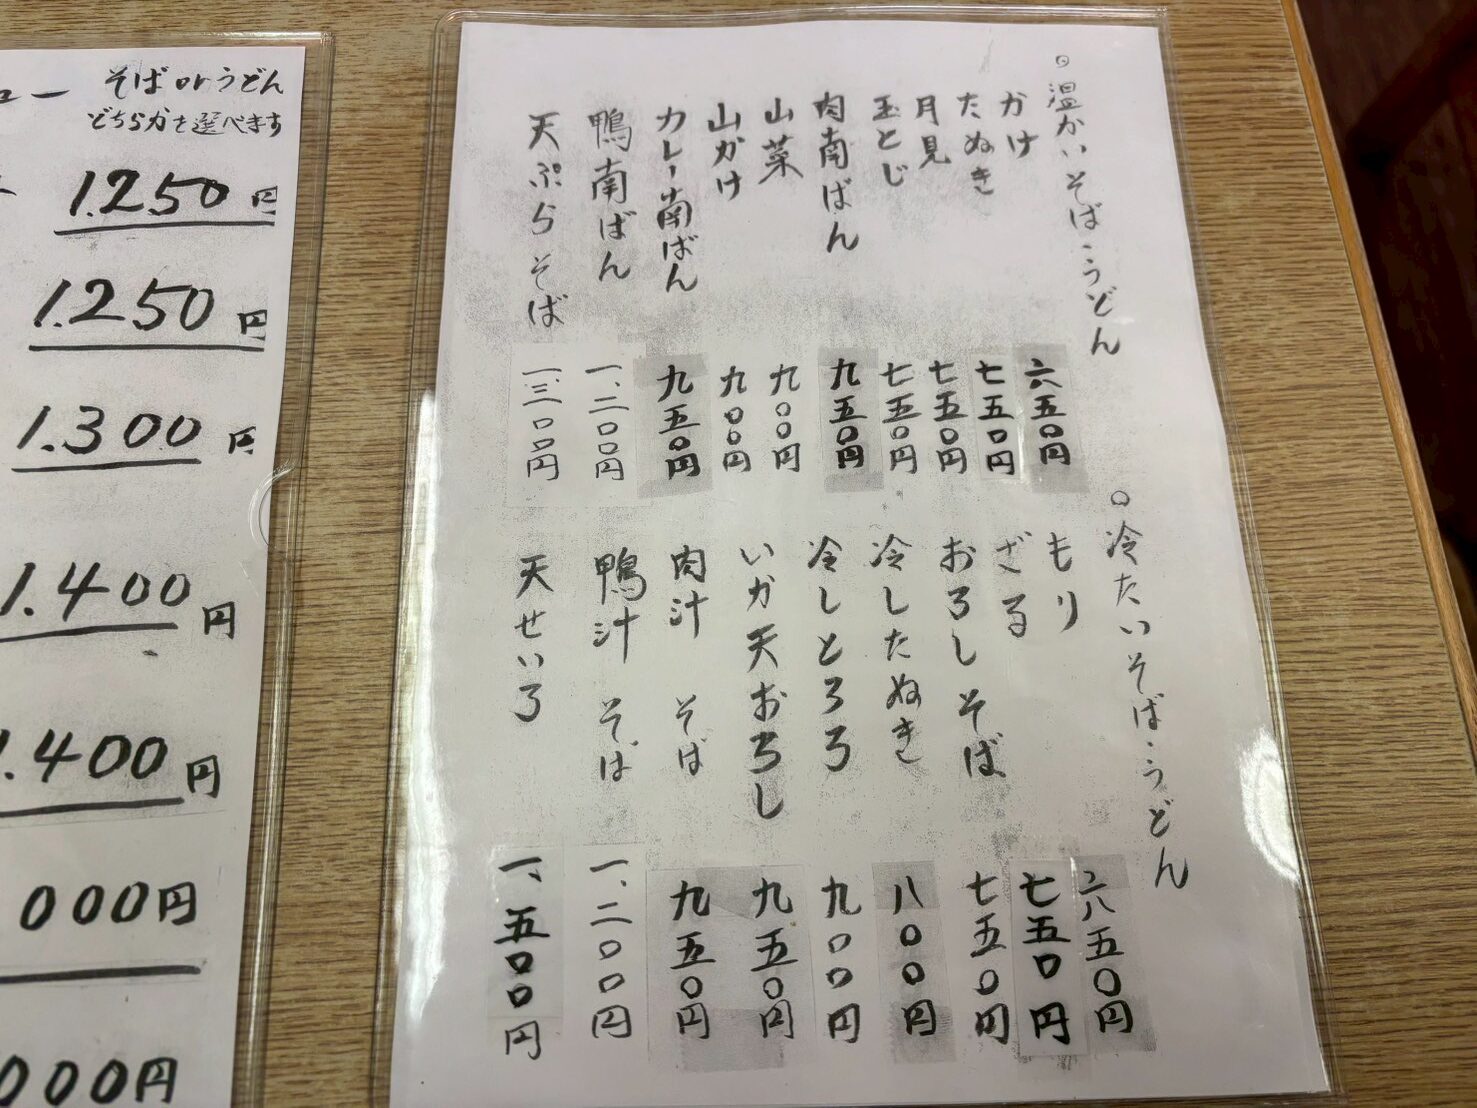 ュー
そばorうどん
どちらかを選べます
1.250円
1.250円
1.300円
1.400円
1.400円
000円
000円
○温かいそば・うどん
かけ 六五〇円
たぬき 七五〇円
月見 七五〇円
玉とじ 七五〇円
肉南ばん 九五〇円
山菜 九〇〇円
山かけ 九〇〇円
カレー南ばん 九五〇円
鴨南ばん 一、二〇〇円
天ぷらそば 一、三〇〇円
○冷たいそば・うどん
もり 六五〇円
ざる 七五〇円
おろしそば 七五〇円
冷したぬき 八〇〇円
冷しとろろ 九〇〇円
いか天おろし 九五〇円
肉汁 そば 九五〇円
鴨汁 そば 一、二〇〇円
天せいろ 一、五〇〇円